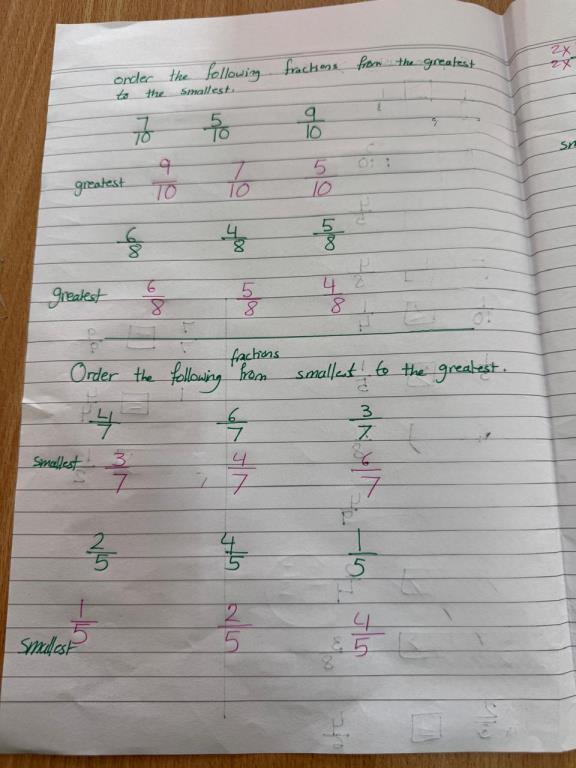 order the following fractions from the greatest
to the smallest.
7/10 5/10 9/10
greatest 9/10 7/10 5/10
6/8 4/8 5/8
greatest 6/8 5/8 4/8
fractions
Order the following from smallest to the greatest.
4/7 6/7 3/7
smallest 3/7 4/7 6/7
2/5 4/5 1/5
smallest 1/5 2/5 4/5
2x
2x